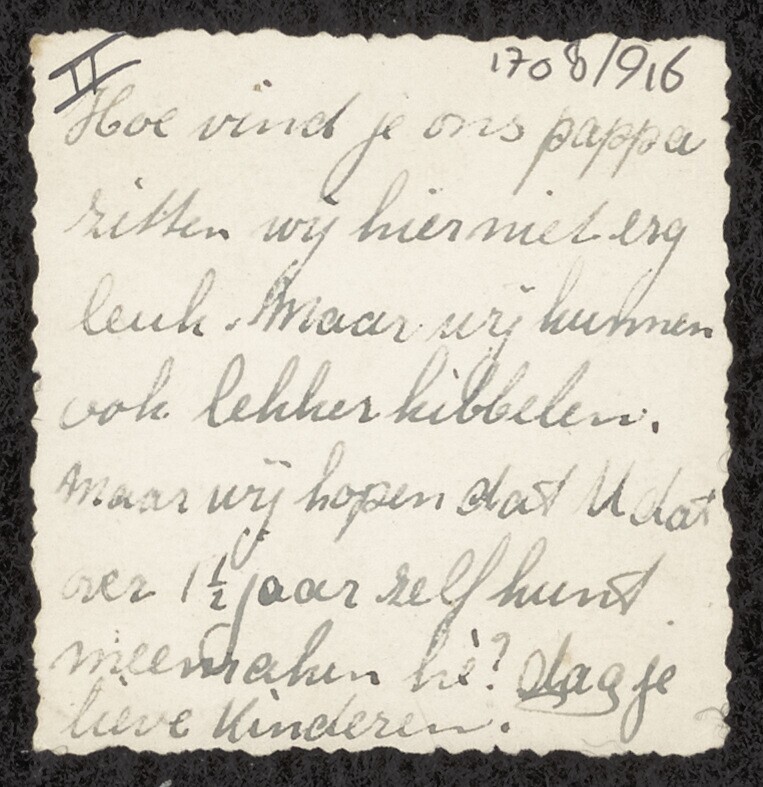 II
1708/916
Hoe vind je ons pappa
zitten wij hier niet erg
leuk. Maar wij kunnen
ook lekker kibbelen.
Maar wij hopen dat U dat
over 1½ jaar zelf kunt
meemaken hè? dag je
lieve Kinderen.